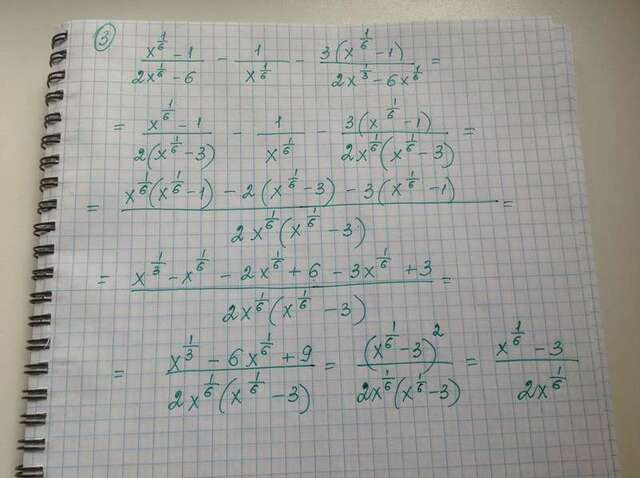 ③
\frac{x^{\frac{1}{6}} - 1}{2x^{\frac{1}{6}} - 6} - \frac{1}{x^{\frac{1}{6}}} - \frac{3(x^{\frac{1}{6}} - 1)}{2x^{\frac{1}{3}} - 6x^{\frac{1}{6}}} =
= \frac{x^{\frac{1}{6}} - 1}{2(x^{\frac{1}{6}} - 3)} - \frac{1}{x^{\frac{1}{6}}} - \frac{3(x^{\frac{1}{6}} - 1)}{2x^{\frac{1}{6}}(x^{\frac{1}{6}} - 3)} =
= \frac{x^{\frac{1}{6}}(x^{\frac{1}{6}} - 1) - 2(x^{\frac{1}{6}} - 3) - 3(x^{\frac{1}{6}} - 1)}{2x^{\frac{1}{6}}(x^{\frac{1}{6}} - 3)} =
= \frac{x^{\frac{1}{3}} - x^{\frac{1}{6}} - 2x^{\frac{1}{6}} + 6 - 3x^{\frac{1}{6}} + 3}{2x^{\frac{1}{6}}(x^{\frac{1}{6}} - 3)} =
= \frac{x^{\frac{1}{3}} - 6x^{\frac{1}{6}} + 9}{2x^{\frac{1}{6}}(x^{\frac{1}{6}} - 3)} = \frac{(x^{\frac{1}{6}} - 3)^2}{2x^{\frac{1}{6}}(x^{\frac{1}{6}} - 3)} = \frac{x^{\frac{1}{6}} - 3}{2x^{\frac{1}{6}}}